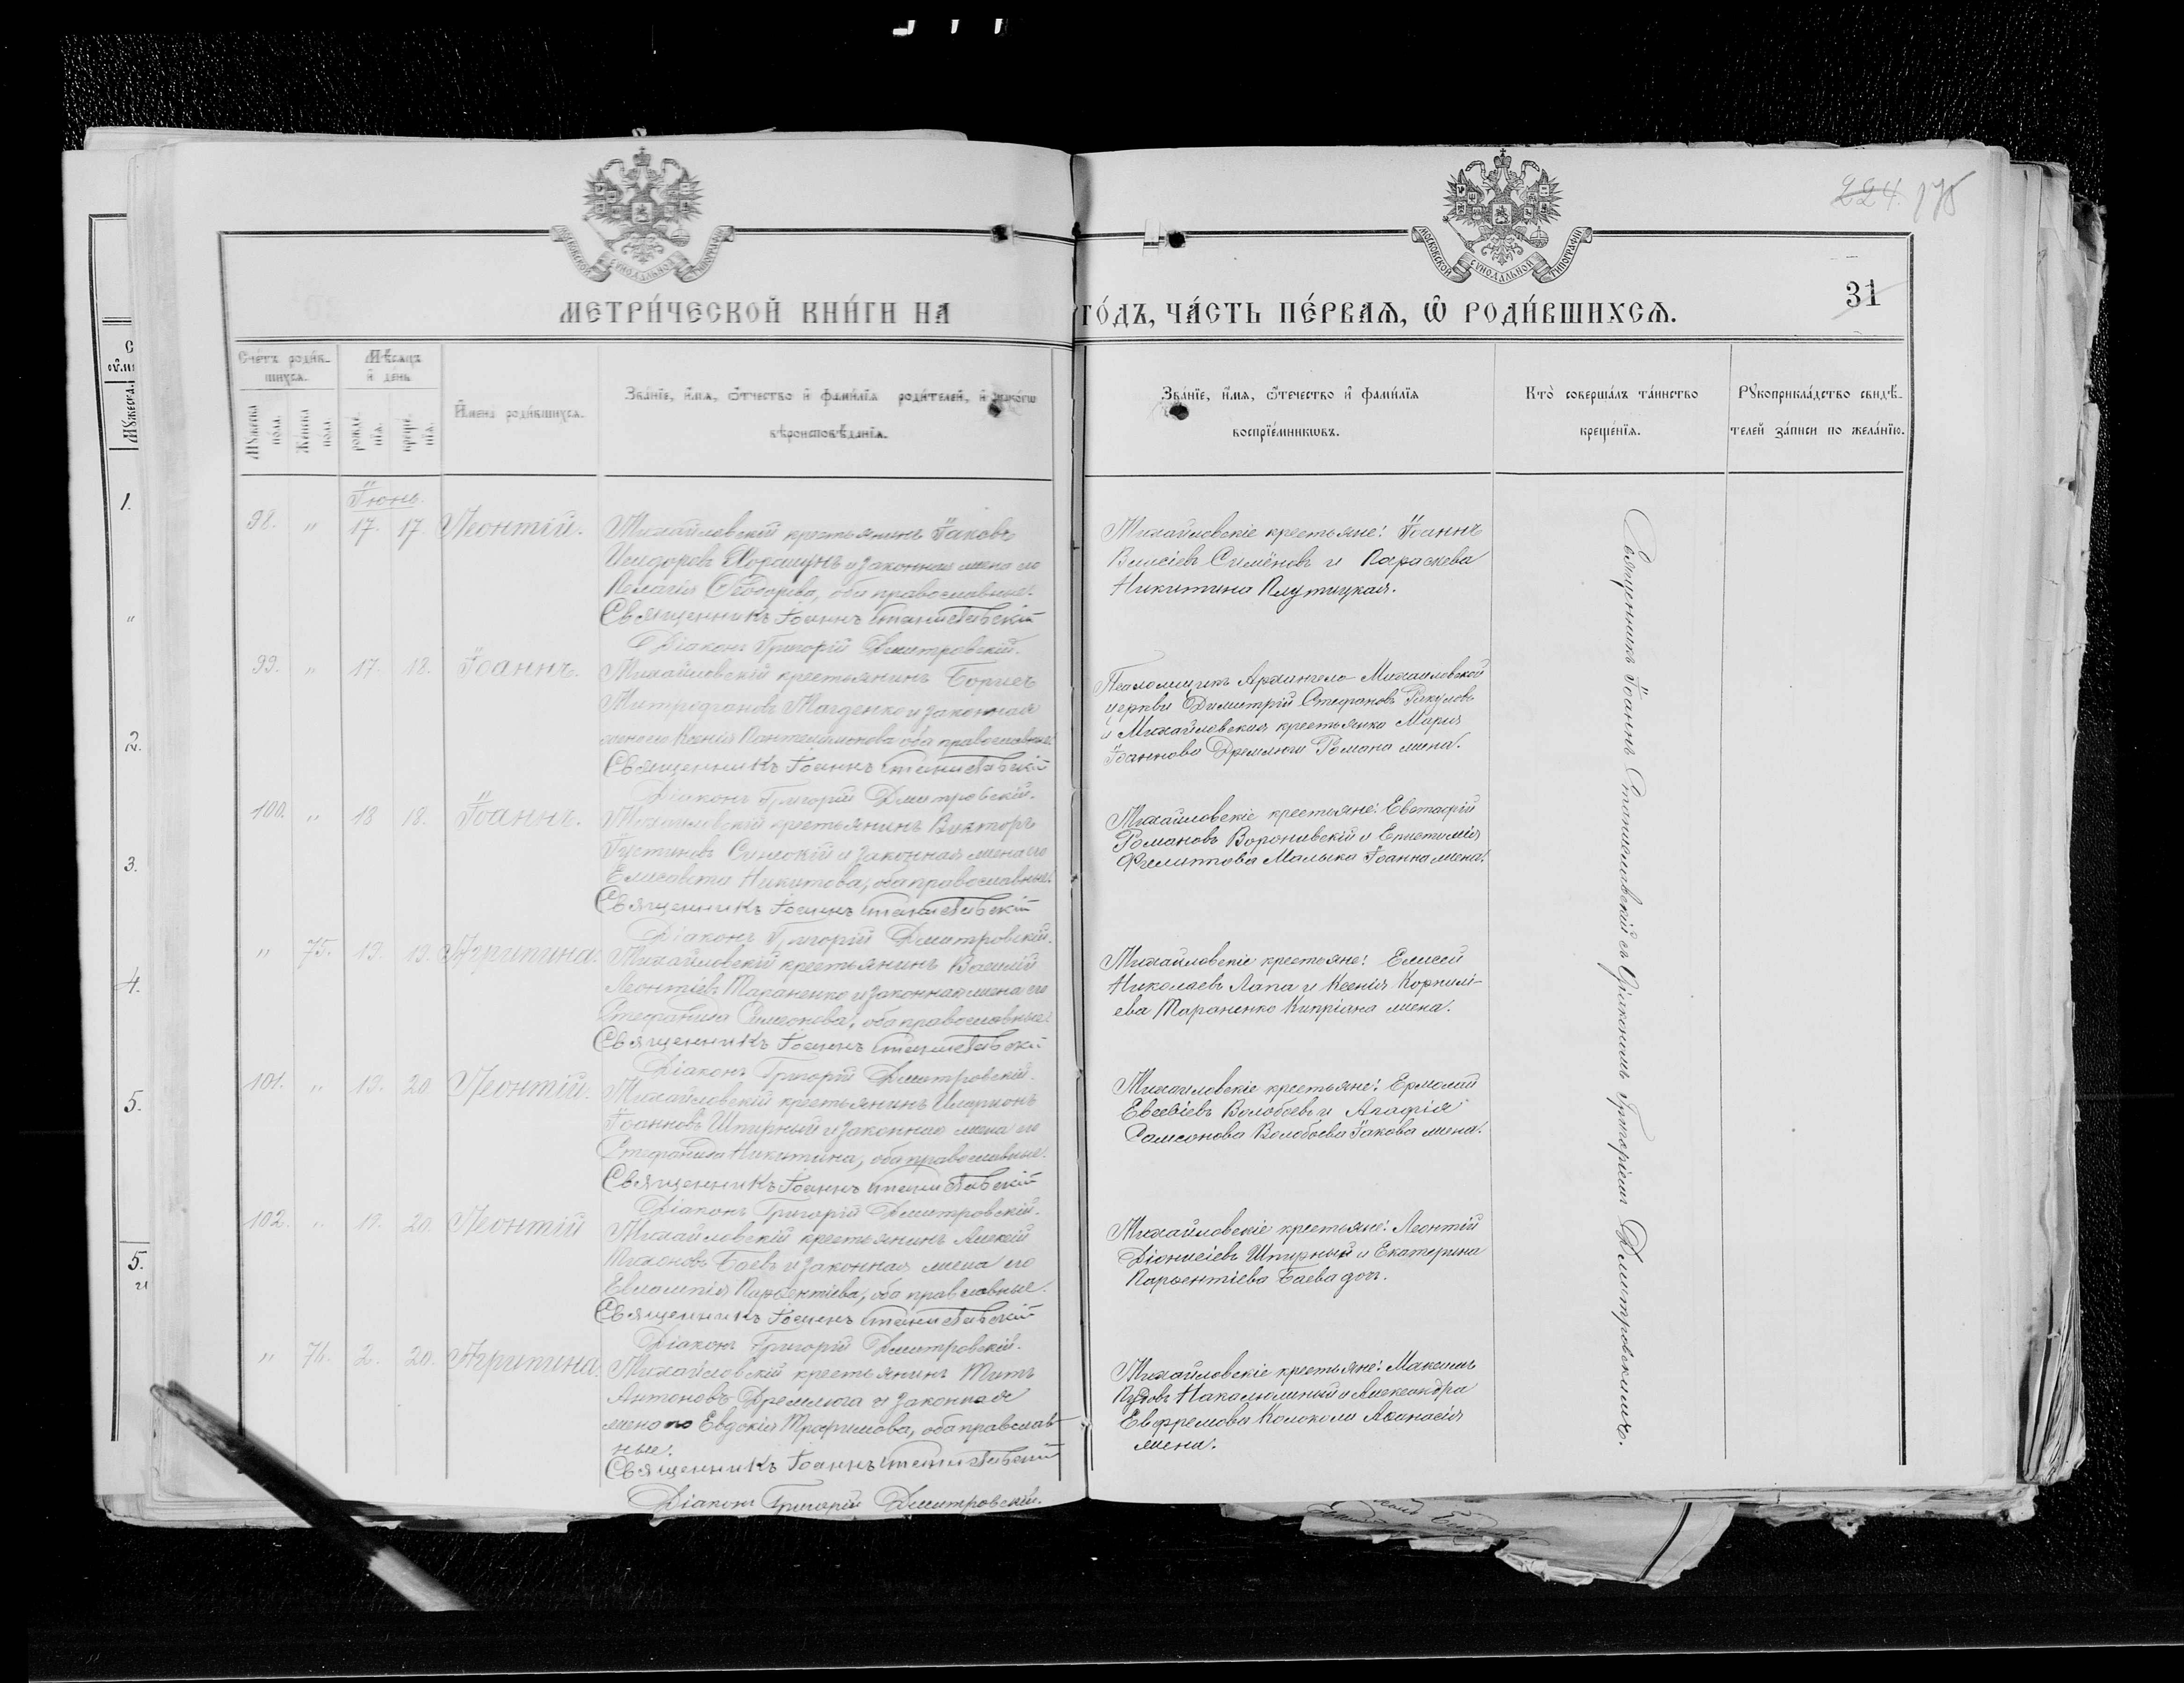 224. 175
31
МОСКОВСКОЙ СУНОДАЛЬНОЙ ТИПОГРАФІИ
МОСКОВСКОЙ СУНОДАЛЬНОЙ ТИПОГРАФІИ
МЕТРИ́ЧЕСКОЙ КНИ́ГИ НА ГО́ДЪ, ЧА́СТЬ ПЕ́РВАѦ, Ѿ РОДИ́ВШИХСѦ.
Сче́тъ роди́в-
шихся.
Мѣсяцъ
и҆ де́нь
Му́жеска
по́ла.
Же́нска
по́ла.
рожде́-
нія.
креще́-
нія.
И҆мена̀ роди́вшихся.
Зва́ніе, и҆́мя, ѻ҆́тчество и҆ фами́лія роди́телей, и҆ како́гѡ
вѣроисповѣ́данія.
Зва́ніе, и҆́мя, ѻ҆те́чество и҆ фами́лія
воспріе́мникѡвъ.
Кто̀ соверша́лъ та́инство
креще́нія.
Рꙋкоприкла́дство свидѣ́-
телей за́писи по жела́нію.
Іюнь.
98. " 17. 17 Леонтій.
Михайловскій крестьянинъ Іаковъ
Исидоровъ Хоршунъ и законная жена его
Пелагія Ѳеодорова, оба православные.
Священникъ Іоаннъ Станиславскій
Діаконъ Григорій Дмитровскій.
Михайловскіе крестьяне: Іоаннъ
Елисіевъ Симёновъ и Параскева
Никитина Плутицкая.
99. " 17. 18. Іоаннъ.
Михайловскій крестьянинъ Борисъ
Митрофановъ Магденко и законная
жена его Ксенія Пантелимонова оба православные.
Священникъ Іоаннъ Станиславскій
Діаконъ Григорій Дмитровскій.
Псаломщикъ Архангело-Михаиловской
церкви Димитрій Стефановъ
и Михайловская крестьянка Марія
Іоаннова Дремлюги Романа жена.
100. " 18 18. Іоаннъ.
Михайловскій крестьянинъ Викторъ
Іустиновъ и законная жена его
Елисавета Никитова, оба православные.
Священникъ Іоаннъ Станиславскій
Діаконъ Григорій Дмитровскій.
Михайловскіе крестьяне: Евстафій
Романовъ Воронивскій и Епистимія
Малыка Іоанна жена.
" 75. 19. 19. Агрипина.
Михайловскій крестьянинъ Василій
Леонтіевъ Тараненко и законная жена его
Стефанида Симеонова, оба православные.
Священникъ Іоаннъ Станиславскій
Діаконъ Григорій Дмитровскій.
Михайловскіе крестьяне: Елисей
Николаевъ Лапа и Ксенія Корнилі-
ева Тараненко Кипріана жена.
101. " 19. 20 Леонтій.
Михайловскій крестьянинъ Иларионъ
Іоанновъ Штирный и законная жена его
Стефанида Никитина, оба православные.
Священникъ Іоаннъ Станиславскій
Діаконъ Григорій Дмитровскій.
Михайловскіе крестьяне: Ермолай
Евсевіевъ Волобоевъ и Агафія
Самсонова Волобоева Іакова жена.
102. " 19. 20. Леонтій
Михайловскій крестьянинъ Алексій
Тихоновъ Баевъ и законная жена его
Евлампія Парфентіева, оба православные.
Священникъ Іоаннъ Станиславскій
Діаконъ Григорій Дмитровскій.
Михайловскіе крестьяне: Леонтій
Діонисіевъ Штирный и Екатерина
Парфентіева Баева доч.
" 76. 2. 20. Агрипина.
Михайловскій крестьянинъ Титъ
Антоновъ Дремлюга и законная
жена его Евдокія Трофимова, оба православ-
ные.
Священникъ Іоаннъ Станиславскій
Діаконъ Григорій Дмитровскій.
Михайловскіе крестьяне: Максимъ
Пудовъ и Александра
Евфремова Колоколи Афанасія
жена.
Священникъ Іоаннъ Станиславскій съ Діакономъ Григоріемъ Дмитровскимъ.
Мꙋжеска
1.
"
2.
3.
4.
5.
5.